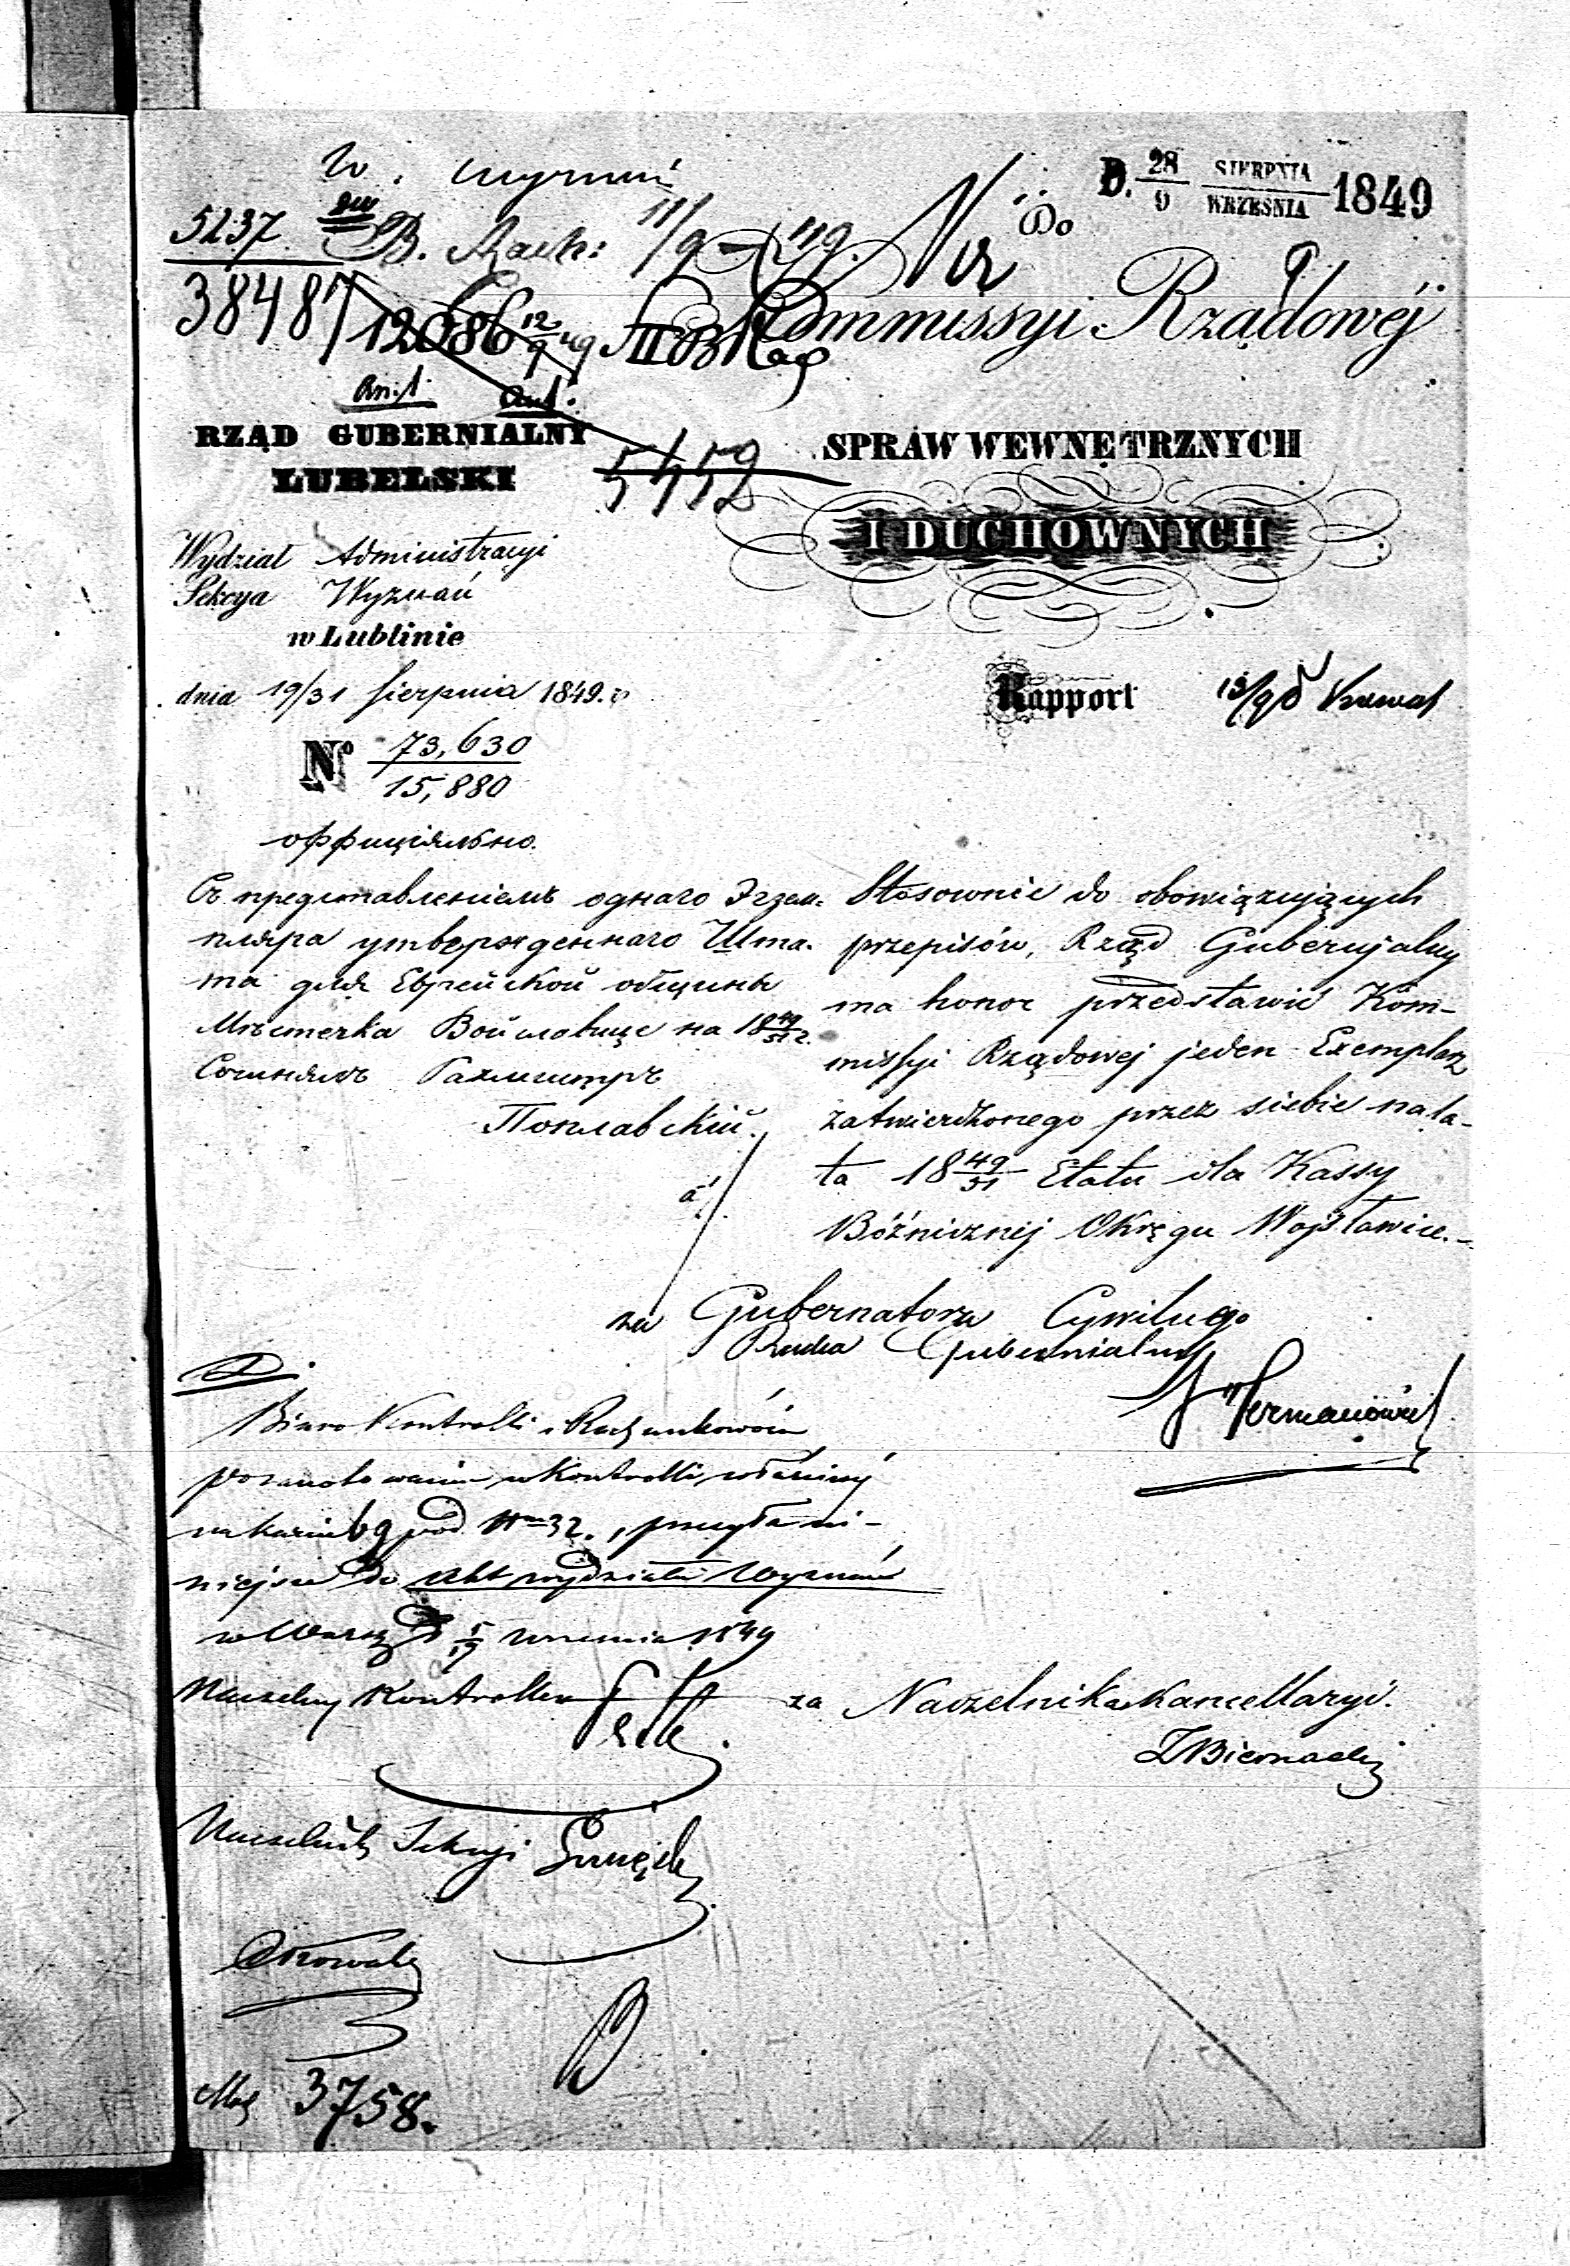 W. Wyznań
D. 28/9 SIERPNIA/WRZEŚNIA 1849
5237
38487
B. Rach: 11/9
Do
12086 12/9 49
Kommissyi Rządowéj
RZĄD GUBERNIALNY
LUBELSKI
5452
SPRAW WEWNĘTRZNYCH
I DUCHOWNYCH
Wydział Administracyi
Sekcya Wyznań
w Lublinie
dnia 19/31 Sierpnia 1849. r
Rapport
13/9
N° 73,630/15,880
оффиціяльно.
Съ представленіемъ одного Экзем=
пляра утвержденнаго Шта-
та для Еврейской общины
Мѣстечка Войславице на 18 49/51 г.
Сочинялъ Рахмистръ
Поплавскій.
Stosownie do obowiązujących
przepisów, Rząd Gubernjalny
ma honor przedstawić Kom-
missyi Rządowej jeden Exemplarz
zatwierdzonego przez siebie na la-
ta 18 49/51 Etatu dla Kassy
Bóżnicznej Okręgu Wojsławice.-
za Gubernatora Cywilnego
Radca Gubernialny
Hermanowicz
D.
Biuro Kontrolli i Rachunkowości
po zanotowaniu w Kontrolli właściwéj
na karcie 69 pod Nrem 32., przesyła ni-
niejsze do Akt wydziału Wyznań
w Warsz. d 5/17 Września 1849
Naczelny Kontroller
za Naczelnika Kancellaryi.
Biernacki
Naczelnik Sekcyi
3758.